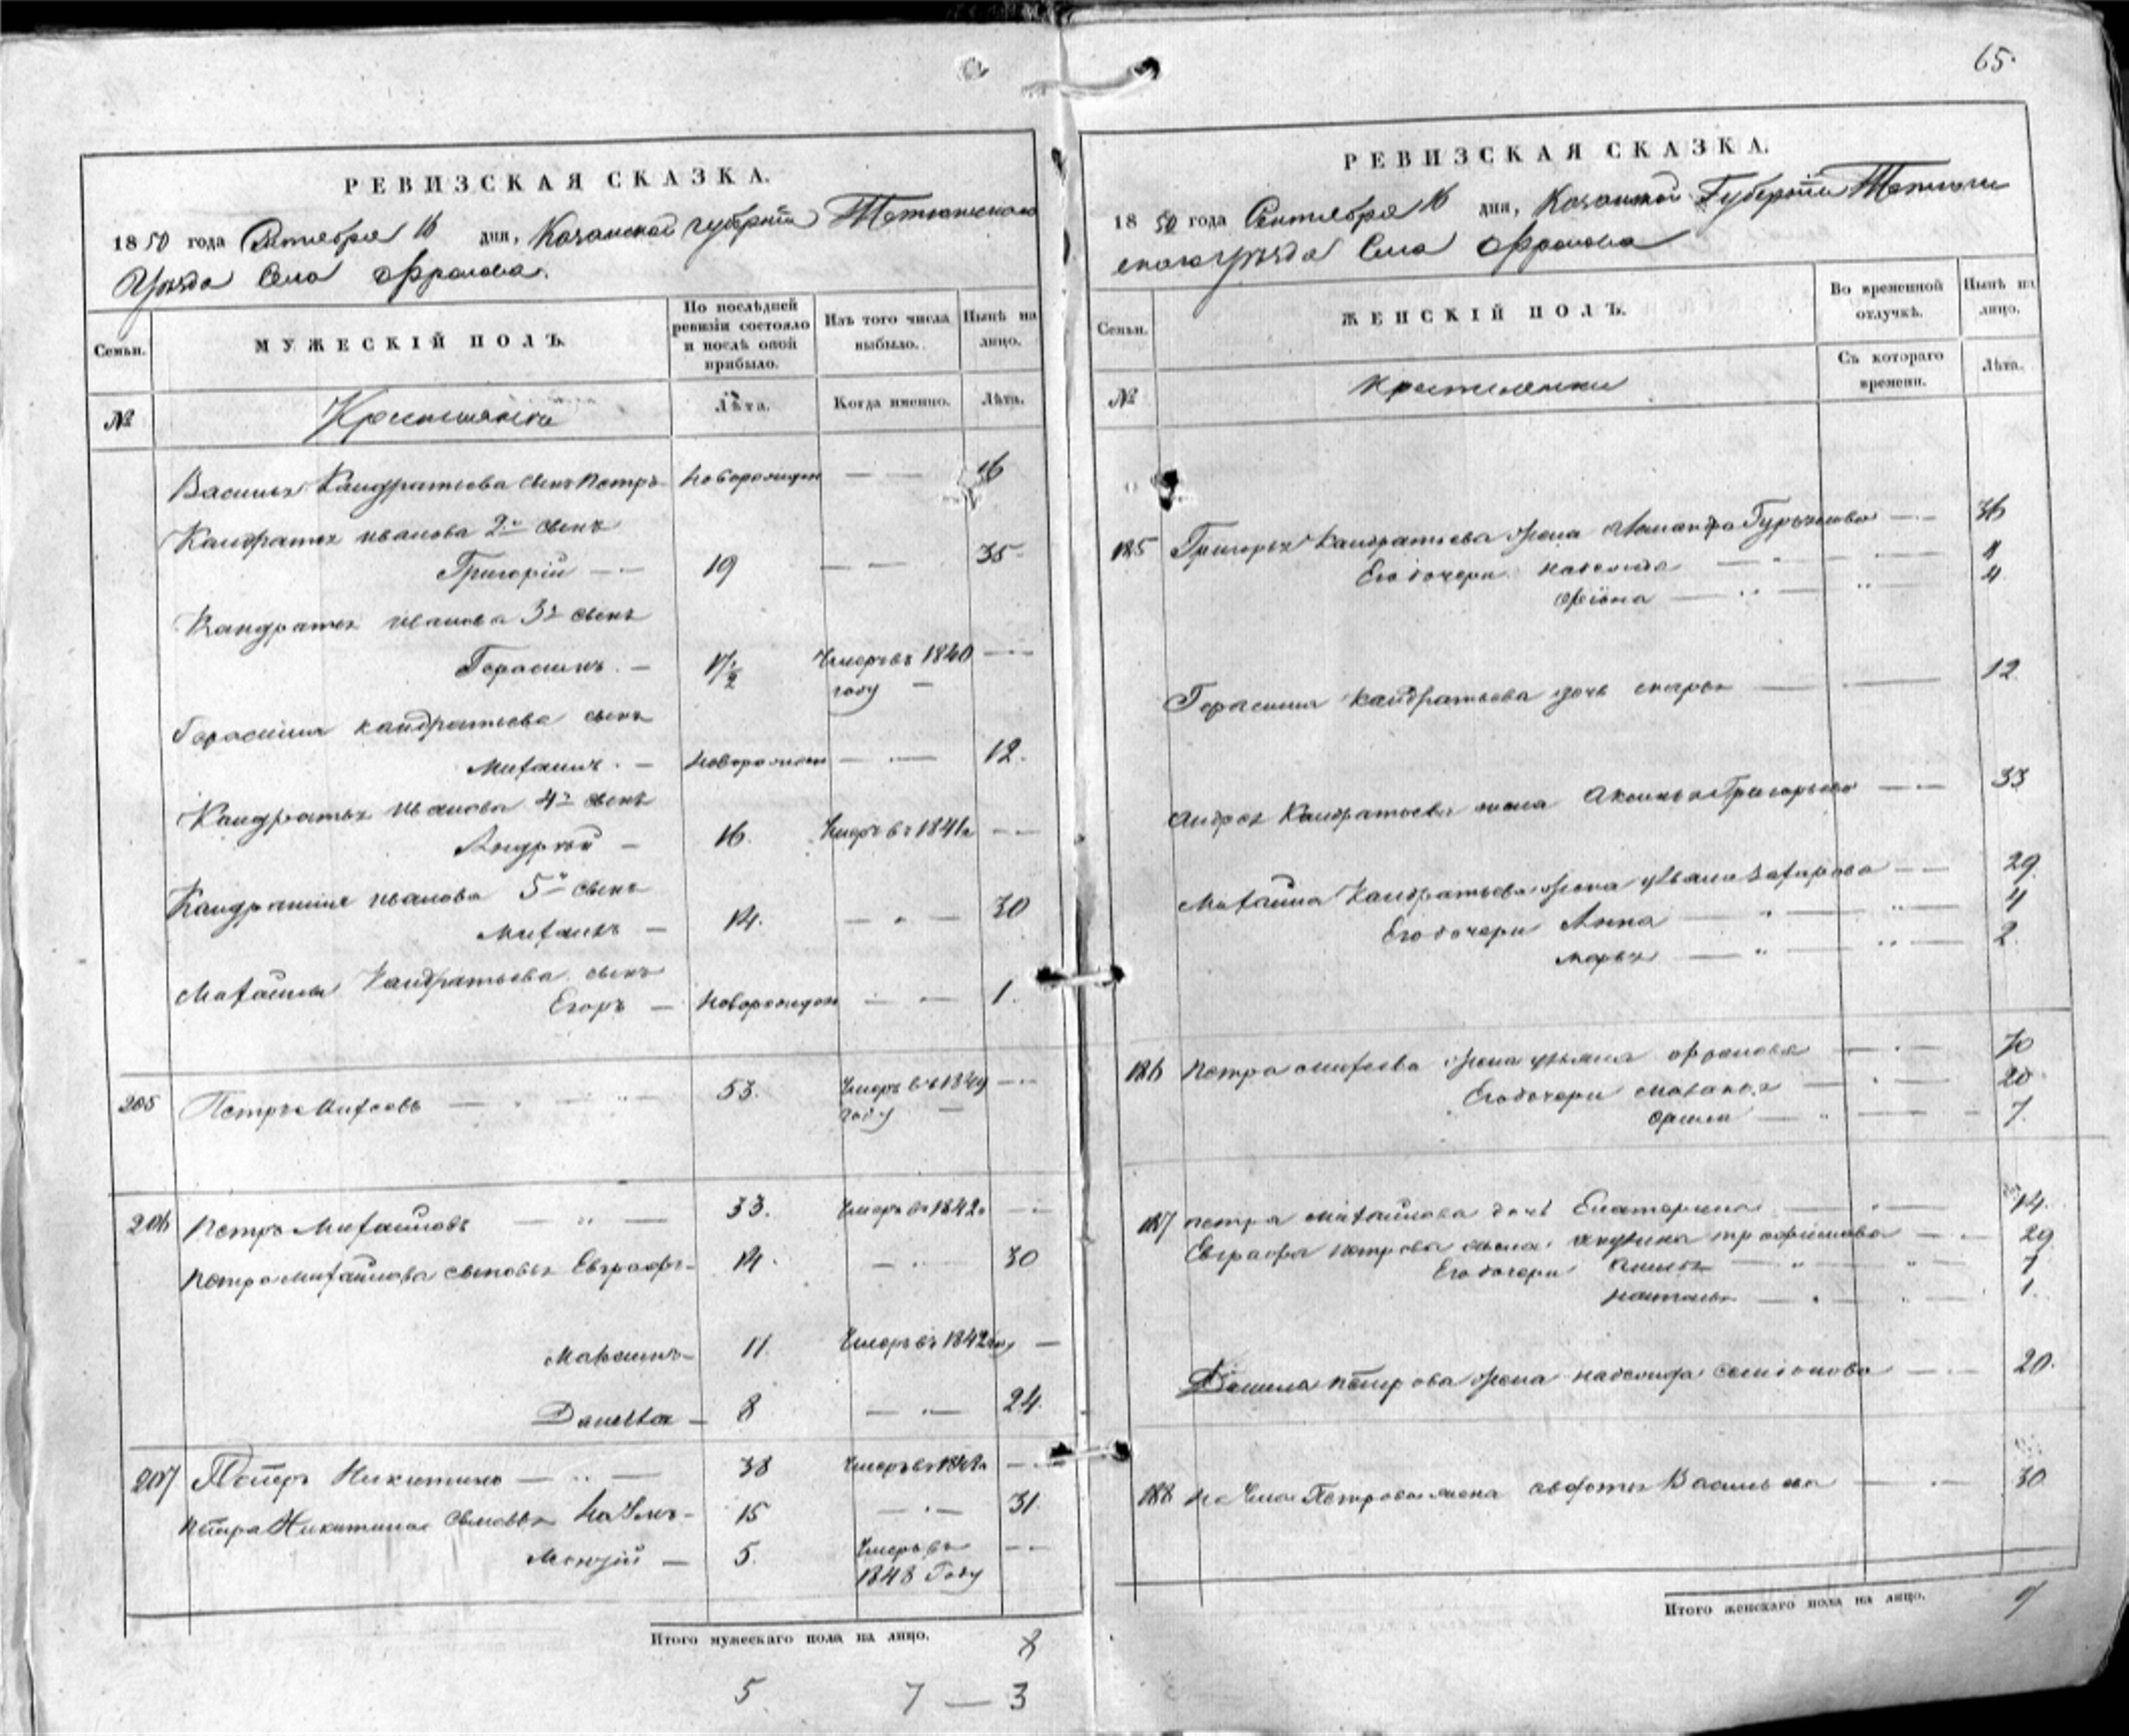 65.
РЕВИЗСКАЯ СКАЗКА.
1850 года Сентября 16 дня, Казанской губернiи Тетюшскаго
Уѣзда Села Фролова.
Семьи.
МУЖЕСКІЙ ПОЛЪ.
По послѣдней ревизіи состояло и послѣ оной прибыло.
Изъ того числа выбыло.
Нынѣ на лицо.
№
Крестьяне
Лѣта.
Когда именно.
Лѣта.
Василья Кандратьева сынъ Петръ новорожден — — 16
Кандратья иванова 2й сынъ
Григорій — 19 — — 35
Кандратья иванова 3й сынъ
Герасимъ — 17½ Умеръ въ 1840 —
году —
Герасима кандратьева сынъ
Михаилъ — новорожден — — 12.
Кандратья иванова 4й сынъ
Андрей — 16. Умеръ въ 1841 —
Кандратья иванова 5й сынъ
Михаилъ — 14. — — 30
Михаилы Кандратьева сынъ
Егоръ — Новорожден — — 1.
205 Петръ — 53. Умеръ въ 1849 —
году —
206 Петръ Михайловъ — — 33. Умеръ въ 1842 —
Петра михайлова сыновья Евграфъ - 14. — 30
Максимъ - 11. Умеръ въ 1842 —
Данила — 8 — — 24.
207 Петръ Никитинъ — — 38 Умеръ въ —
Петра Никитина сыновья Наумъ - 15 — — 31.
— 5. Умеръ въ —
1848 Году
Итого мужескаго пола на лицо. 8
5 7 — 3
РЕВИЗСКАЯ СКАЗКА.
1850 года Сентября 16 дня, Казанской Губернiи Тетюш
скаго Уѣзда Села Фролова
Семьи.
ЖЕНСКІЙ ПОЛЪ.
Во временной отлучкѣ.
Нынѣ на лицо.
№
Крестьянки
Съ котораго времени.
Лѣта.
185 Григорья Кандратьева жена — 36
Его дочери — 8
— 4
Герасима Кандратьева дочь — 12
Андрея Кандратьева жена Аксинья Григорьева — 33
Михаила Кандратьева жена Ульяна Захарова — 29.
Его дочери Анна — 4
марья — 2.
186 Петра жена ульяна фролова — 70
Его дочери — 20
— 7.
187 петра михайлова дочь Екатерина — 14.
Евграфа петрова жена акулина трофимова — 29
Его дочери — 7
наталья — 1.
Данила петрова жена семіонова — 20.
188 Наума Петрова жена Васильева — 30
Итого женскаго пола на лицо.